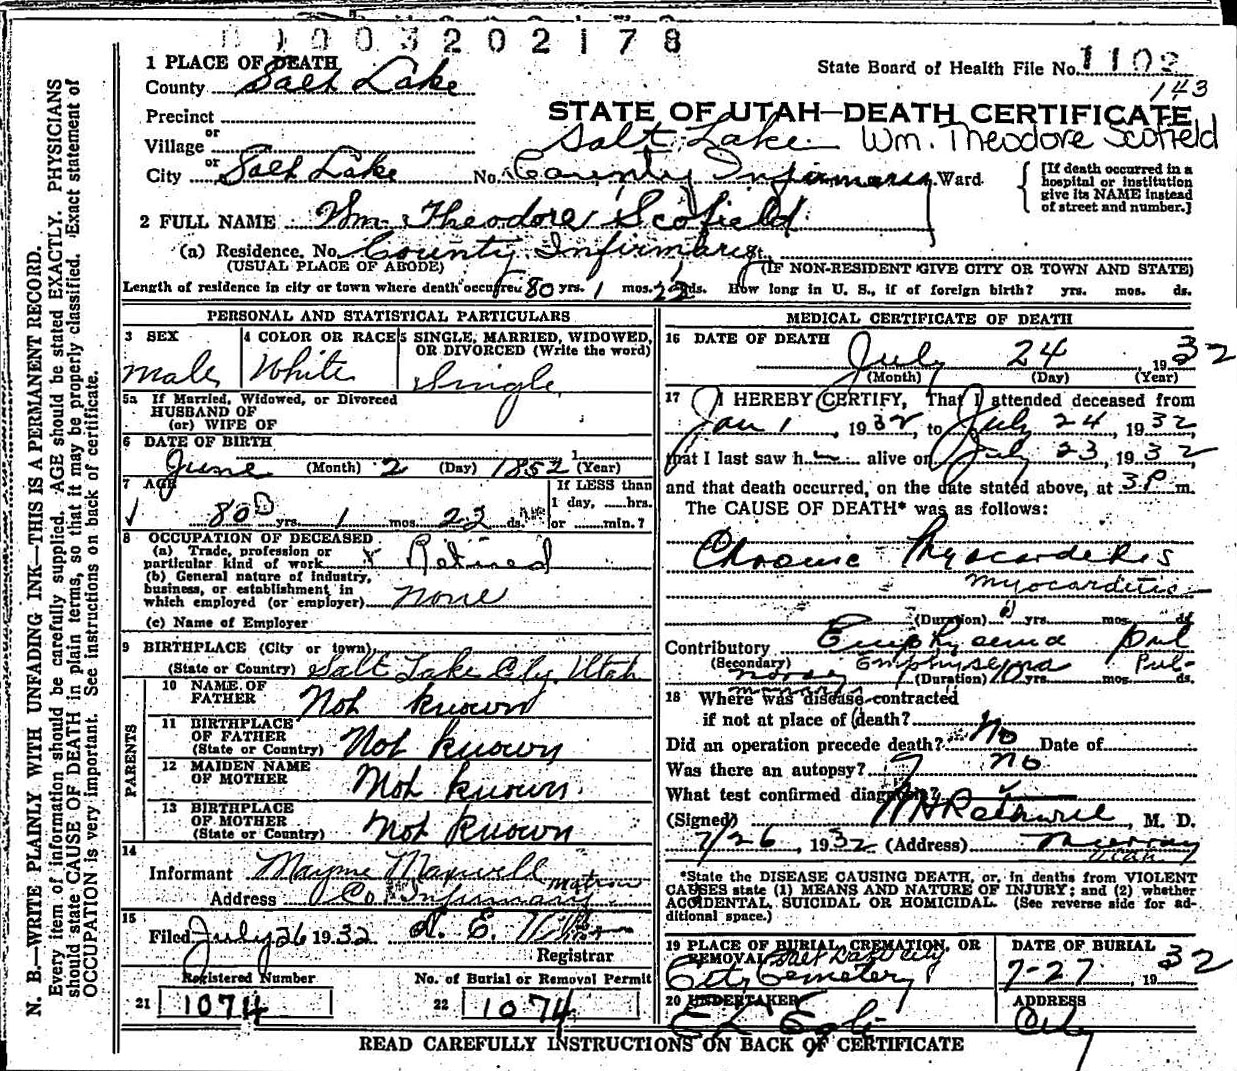 0003202178
1 PLACE OF DEATH
County Salt Lake
State Board of Health File No. 1102
143
Precinct
STATE OF UTAH—DEATH CERTIFICATE
or
Village
Salt Lake Wm. Theodore Scofield
or
City Salt Lake No. County Infirmary Ward
[If death occurred in a hospital or institution give its NAME instead of street and number.]
2 FULL NAME Wm. Theodore Scofield
(a) Residence. No. County Infirmary St.
(USUAL PLACE OF ABODE) (IF NON-RESIDENT GIVE CITY OR TOWN AND STATE)
Length of residence in city or town where death occurred 80 yrs. 1 mos. 22 ds. How long in U. S., if of foreign birth? yrs. mos. ds.
PERSONAL AND STATISTICAL PARTICULARS
3 SEX
Male
4 COLOR OR RACE
White
5 SINGLE, MARRIED, WIDOWED,
OR DIVORCED (Write the word)
Single
5a If Married, Widowed, or Divorced
HUSBAND OF
(or) WIFE OF
6 DATE OF BIRTH
June (Month) 2 (Day) 1852 (Year)
7 AGE
80 yrs. 1 mos. 22 ds.
If LESS than
1 day, hrs.
or min.?
8 OCCUPATION OF DECEASED
(a) Trade, profession or
particular kind of work x Retired
(b) General nature of industry,
business, or establishment in
which employed (or employer) none
(c) Name of Employer
9 BIRTHPLACE (City or town)
(State or Country) Salt Lake City, Utah
PARENTS
10 NAME OF
FATHER Not known
11 BIRTHPLACE
OF FATHER
(State or Country) Not known
12 MAIDEN NAME
OF MOTHER Not known
13 BIRTHPLACE
OF MOTHER
(State or Country) Not known
14
Informant Mayme Maxwell matron
Address Co. Infirmary
15
Filed July 26 1932 N. E.
Registrar
Registered Number No. of Burial or Removal Permit
21 1074 22 1074
MEDICAL CERTIFICATE OF DEATH
16 DATE OF DEATH
July 24 1932
(Month) (Day) (Year)
17 I HEREBY CERTIFY, That I attended deceased from
Jan 1, 1932, to July 24, 1932,
that I last saw h alive on July 23, 1932
and that death occurred, on the date stated above, at 3P m.
The CAUSE OF DEATH* was as follows:
Chronic Myocarditis
myocarditis
(Duration) yrs. mos. ds.
Contributory Emphysema Pul
(Secondary) Emphysema Pul-
(Duration) 10 yrs. mos. ds.
18 Where was disease contracted
if not at place of death?
Did an operation precede death? No Date of
Was there an autopsy? no
What test confirmed diagnosis?
(Signed) , M. D.
7/26, 1932 (Address) Murray
Utah
*State the DISEASE CAUSING DEATH, or, in deaths from VIOLENT
CAUSES state (1) MEANS AND NATURE OF INJURY; and (2) whether
ACCIDENTAL, SUICIDAL OR HOMICIDAL. (See reverse side for ad-
ditional space.)
19 PLACE OF BURIAL, CREMATION, OR
REMOVAL Salt Lake City
City Cemetery
DATE OF BURIAL
7-27, 1932
20 UNDERTAKER
E L Egli
ADDRESS
City
READ CAREFULLY INSTRUCTIONS ON BACK OF CERTIFICATE
N. B.—WRITE PLAINLY WITH UNFADING INK—THIS IS A PERMANENT RECORD.
Every item of information should be carefully supplied. AGE should be stated EXACTLY. PHYSICIANS
should state CAUSE OF DEATH in plain terms, so that it may be properly classified. Exact statement of
OCCUPATION is very important. See instructions on back of certificate.